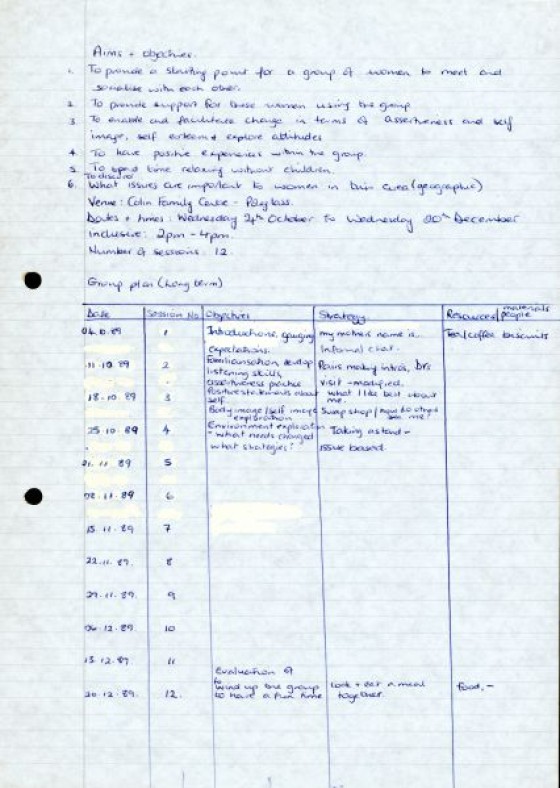 Aims + objectives.
1. To provide a starting point for a group of women to meet and
socialise with each other.
2. To provide support for those women using the group
3. To enable and facilitate change in terms of assertiveness and self
image, self esteem & explore attitudes
4. To have positive experiences within the group.
5. To spend time relaxing without children.
To discuss
6. What issues are important to women in this area (geographic)
Venue: Colin Family Centre - Poleglass.
Dates + times: Wednesday 4th October to Wednesday 20th December
Inclusive: 2pm - 4pm.
Number of sessions: 12.
Group plan (Long term)
materials
Date Session No Objectives Strategy Resources/people
04.10.89 1 Introductions, gauging my mothers name is.. Tea/coffee biscuits
expectations. Informal chat.
11.10.89 2 Familiarisation develop Pairs making intros,
listening skills,
assertiveness practice visit - modified.
18.10.89 3 Positive statements about what I like best about
self. me.
Body image/self image Swap shop/how do others
exploration see me?
25.10.89 4 Environment exploration Taking a stand -
- what needs changed
what strategies? issue based.
01.11.89 5
08.11.89 6
15.11.89 7
22.11.89 8
29.11.89 9
06.12.89 10
13.12.89 11
Evaluation
to
20.12.89. 12. wind up the group Look + eat a meal food, -
to have a fun time together.